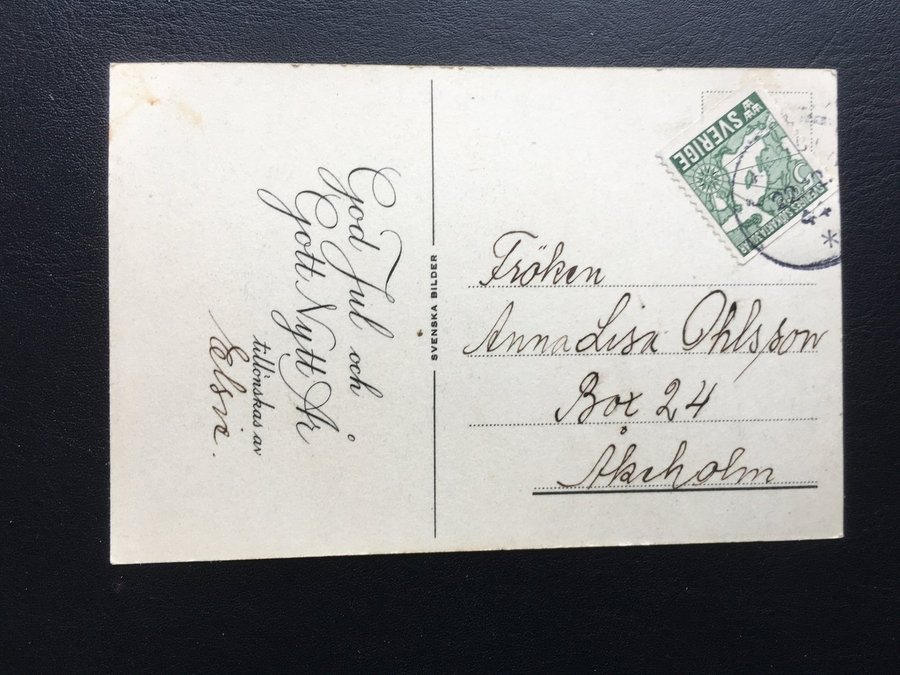 God Jul och
Gott Nytt År
tillönskas av
Elsie.
SVENSKA BILDER
SVERIGE
22
Fröken
Anna Lisa Ohlsson
Box 24
Åkeholm